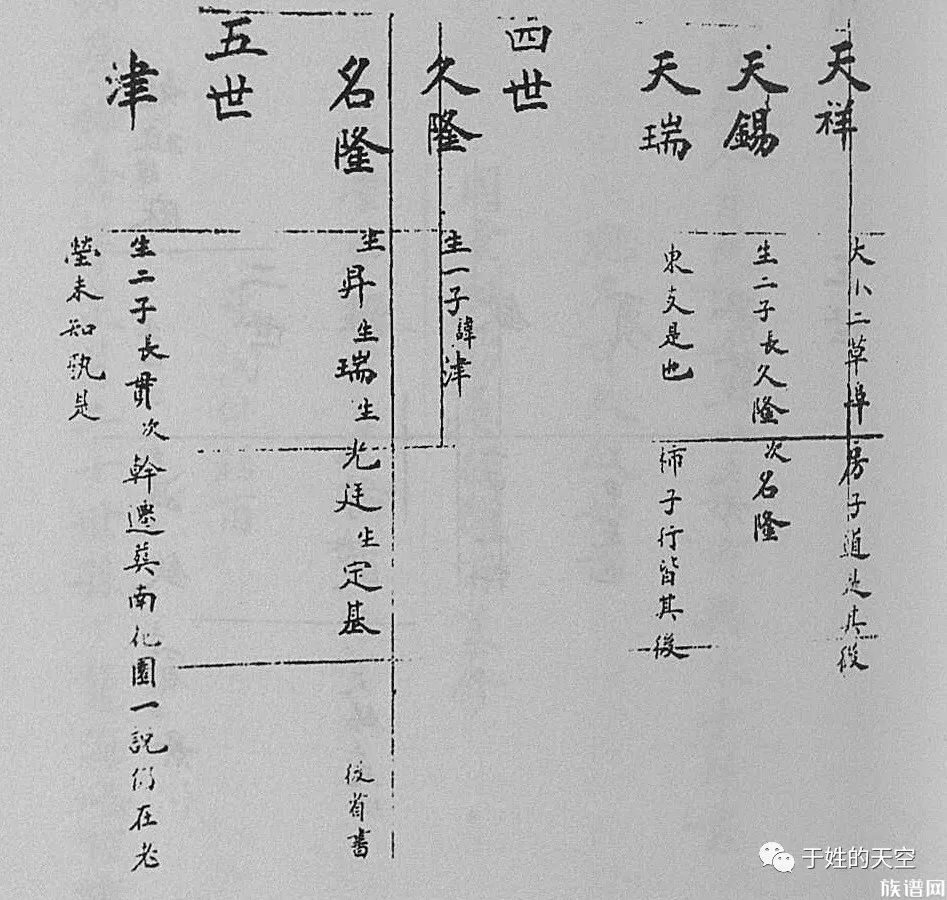 天祥
大小二草埠房子道是其後
天錫
生二子長久隆次名隆
天瑞
東支是也
柿子行皆其後
四世
久隆
生一子諱津
名隆
生昇生瑞生光廷生定基
後省書
五世
津
生二子長貫次幹遷葬南花園一說仍在老
塋未知孰是
于姓的天空
族谱网